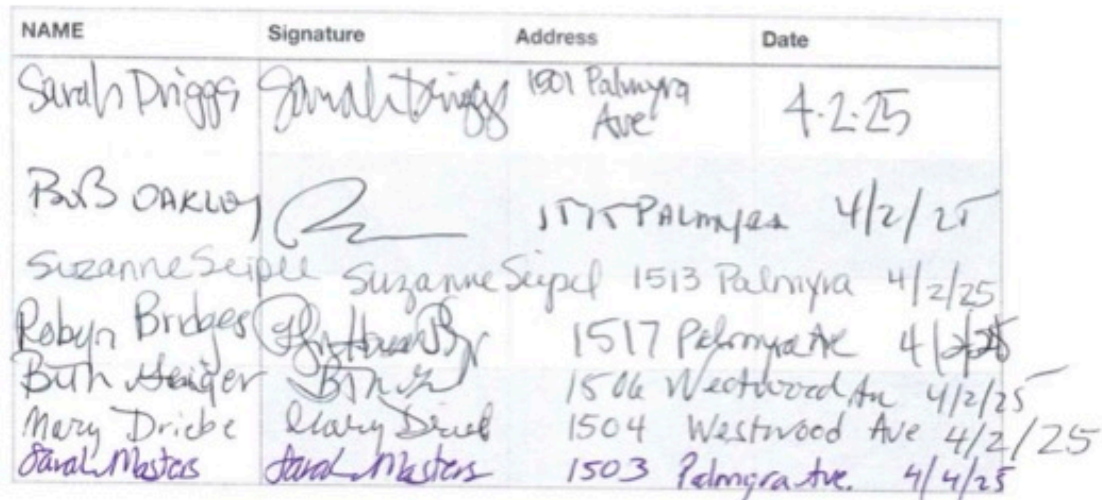 NAME Signature Address Date
Sarah Driggs Sarah Driggs 1501 Palmyra
Ave 4.2.25
BOB OAKLEY 1515 PALMYRA 4/2/25
Suzanne Seipel Suzanne Seipel 1513 Palmyra 4/2/25
Robyn Bridges 1517 Palmyra Ave 4/2/25
Beth 1506 Westwood Av 4/2/25
Mary Driebe Mary Drieb 1504 Westwood Ave 4/2/25
Sarah Masters Sarah Masters 1503 Palmyra Ave. 4/4/25